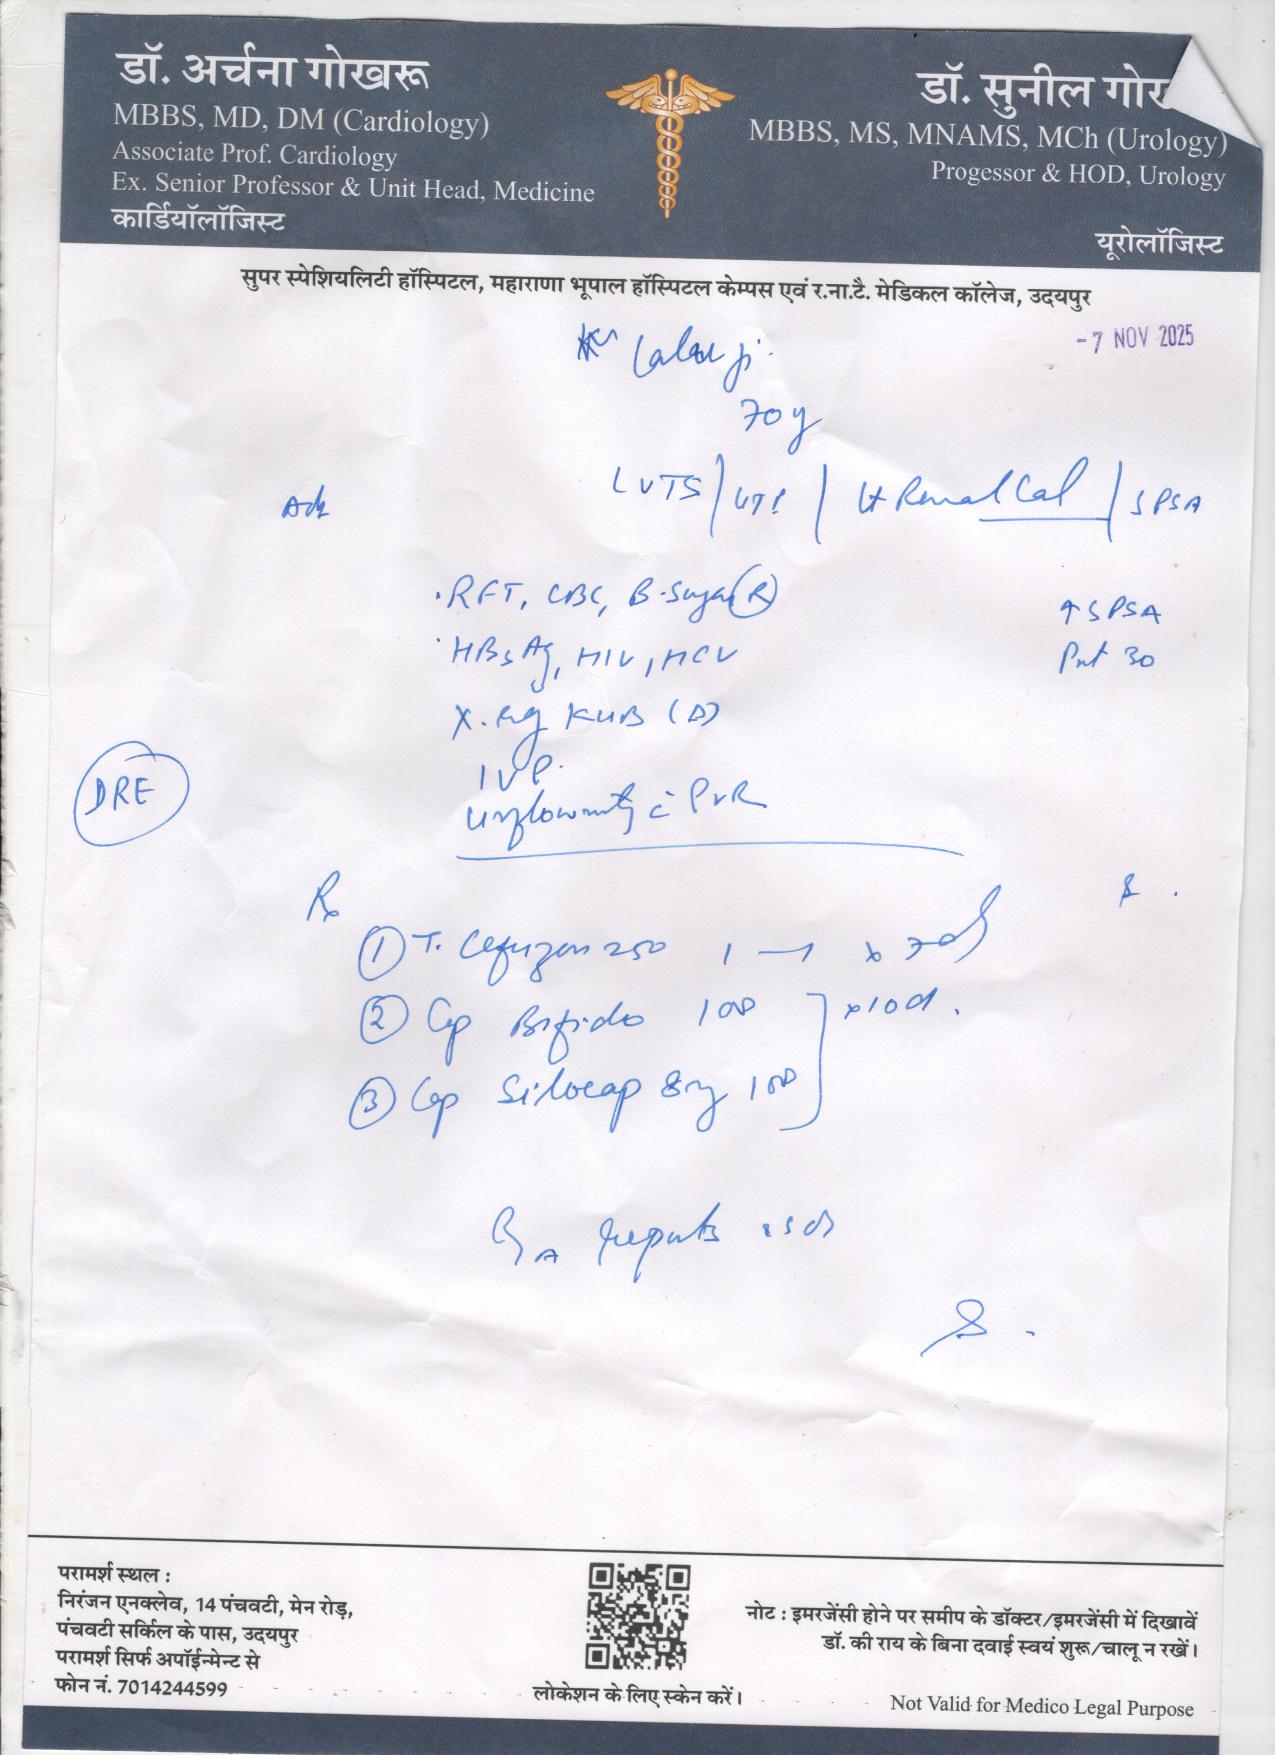 डॉ. अर्चना गोखरू
MBBS, MD, DM (Cardiology)
Associate Prof. Cardiology
Ex. Senior Professor & Unit Head, Medicine
कार्डियॉलॉजिस्ट
डॉ. सुनील गोख
MBBS, MS, MNAMS, MCh (Urology)
Progessor & HOD, Urology
यूरोलॉजिस्ट
सुपर स्पेशियलिटी हॉस्पिटल, महाराणा भूपाल हॉस्पिटल केम्पस एवं र.ना.टै. मेडिकल कॉलेज, उदयपुर
-7 NOV 2025
70y
LUTS / UTI / Lt Renal Cal / SPSA
Adv
. RFT, CBC, B. Sugar (R)
↑ SPSA
. HBsAg, HIV, HCV
30
X. Ray KUB (D)
IVP.
DRE
Uroflowmetry c̄ PVR
Rx
① T. 250 1 — 1 x 7d
② Cap Bifido 1 OD x 10d.
③ Cap Silocap 8mg 1 OD
reports
परामर्श स्थल :
निरंजन एनक्लेव, 14 पंचवटी, मेन रोड़,
पंचवटी सर्किल के पास, उदयपुर
परामर्श सिर्फ अपॉईन्मेन्ट से
फोन नं. 7014244599
लोकेशन के लिए स्केन करें।
नोट : इमरजेंसी होने पर समीप के डॉक्टर/इमरजेंसी में दिखावें
डॉ. की राय के बिना दवाई स्वयं शुरू/चालू न रखें।
Not Valid for Medico Legal Purpose